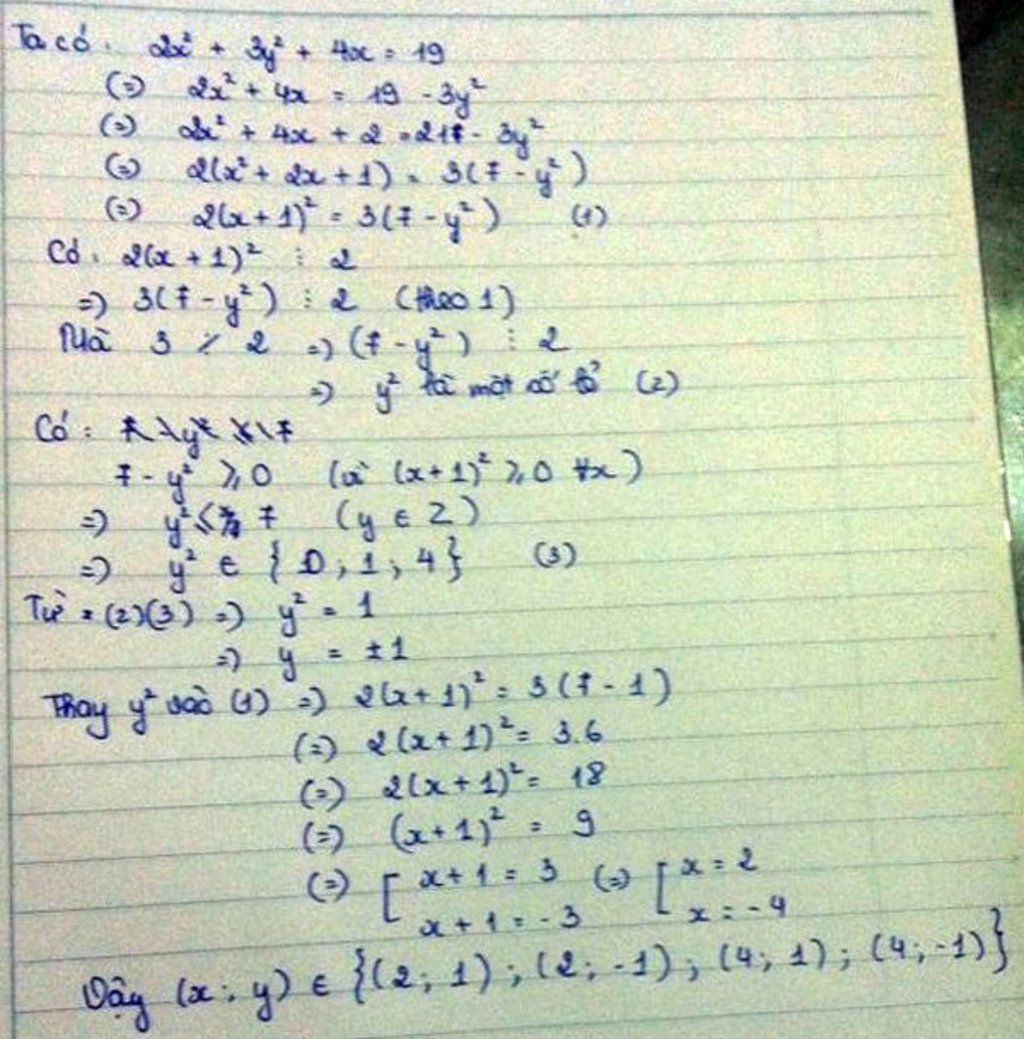 Ta có: 2x² + 3y² + 4x = 19
(=) 2x² + 4x = 19 - 3y²
(=) 2x² + 4x + 2 = 21 - 3y²
(=) 2(x² + 2x + 1) = 3(7 - y²)
(=) 2(x + 1)² = 3(7 - y²) (1)
Có: 2(x + 1)² ⋮ 2
=) 3(7 - y²) ⋮ 2 (theo 1)
Mà 3 ⋮̸ 2 =) (7 - y²) ⋮ 2
=) y² là một số lẻ (2)
Có:
7 - y² ⩾ 0 (vì (x + 1)² ⩾ 0 ∀x)
=) y² ≤ 7 (y ∈ Z)
=) y² ∈ {0; 1; 4} (3)
Từ (2)(3) =) y² = 1
=) y = ±1
Thay y² vào (1) =) 2(x + 1)² = 3(7 - 1)
(=) 2(x + 1)² = 3.6
(=) 2(x + 1)² = 18
(=) (x + 1)² = 9
(=) [ x + 1 = 3 (=) [ x = 2
x + 1 = -3 x = -4
Vậy (x; y) ∈ {(2; 1); (2; -1); (4; 1); (4; -1)}